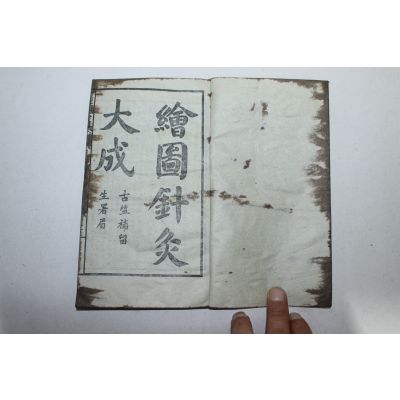 繪圖針灸
大成
古盐補留
生署眉